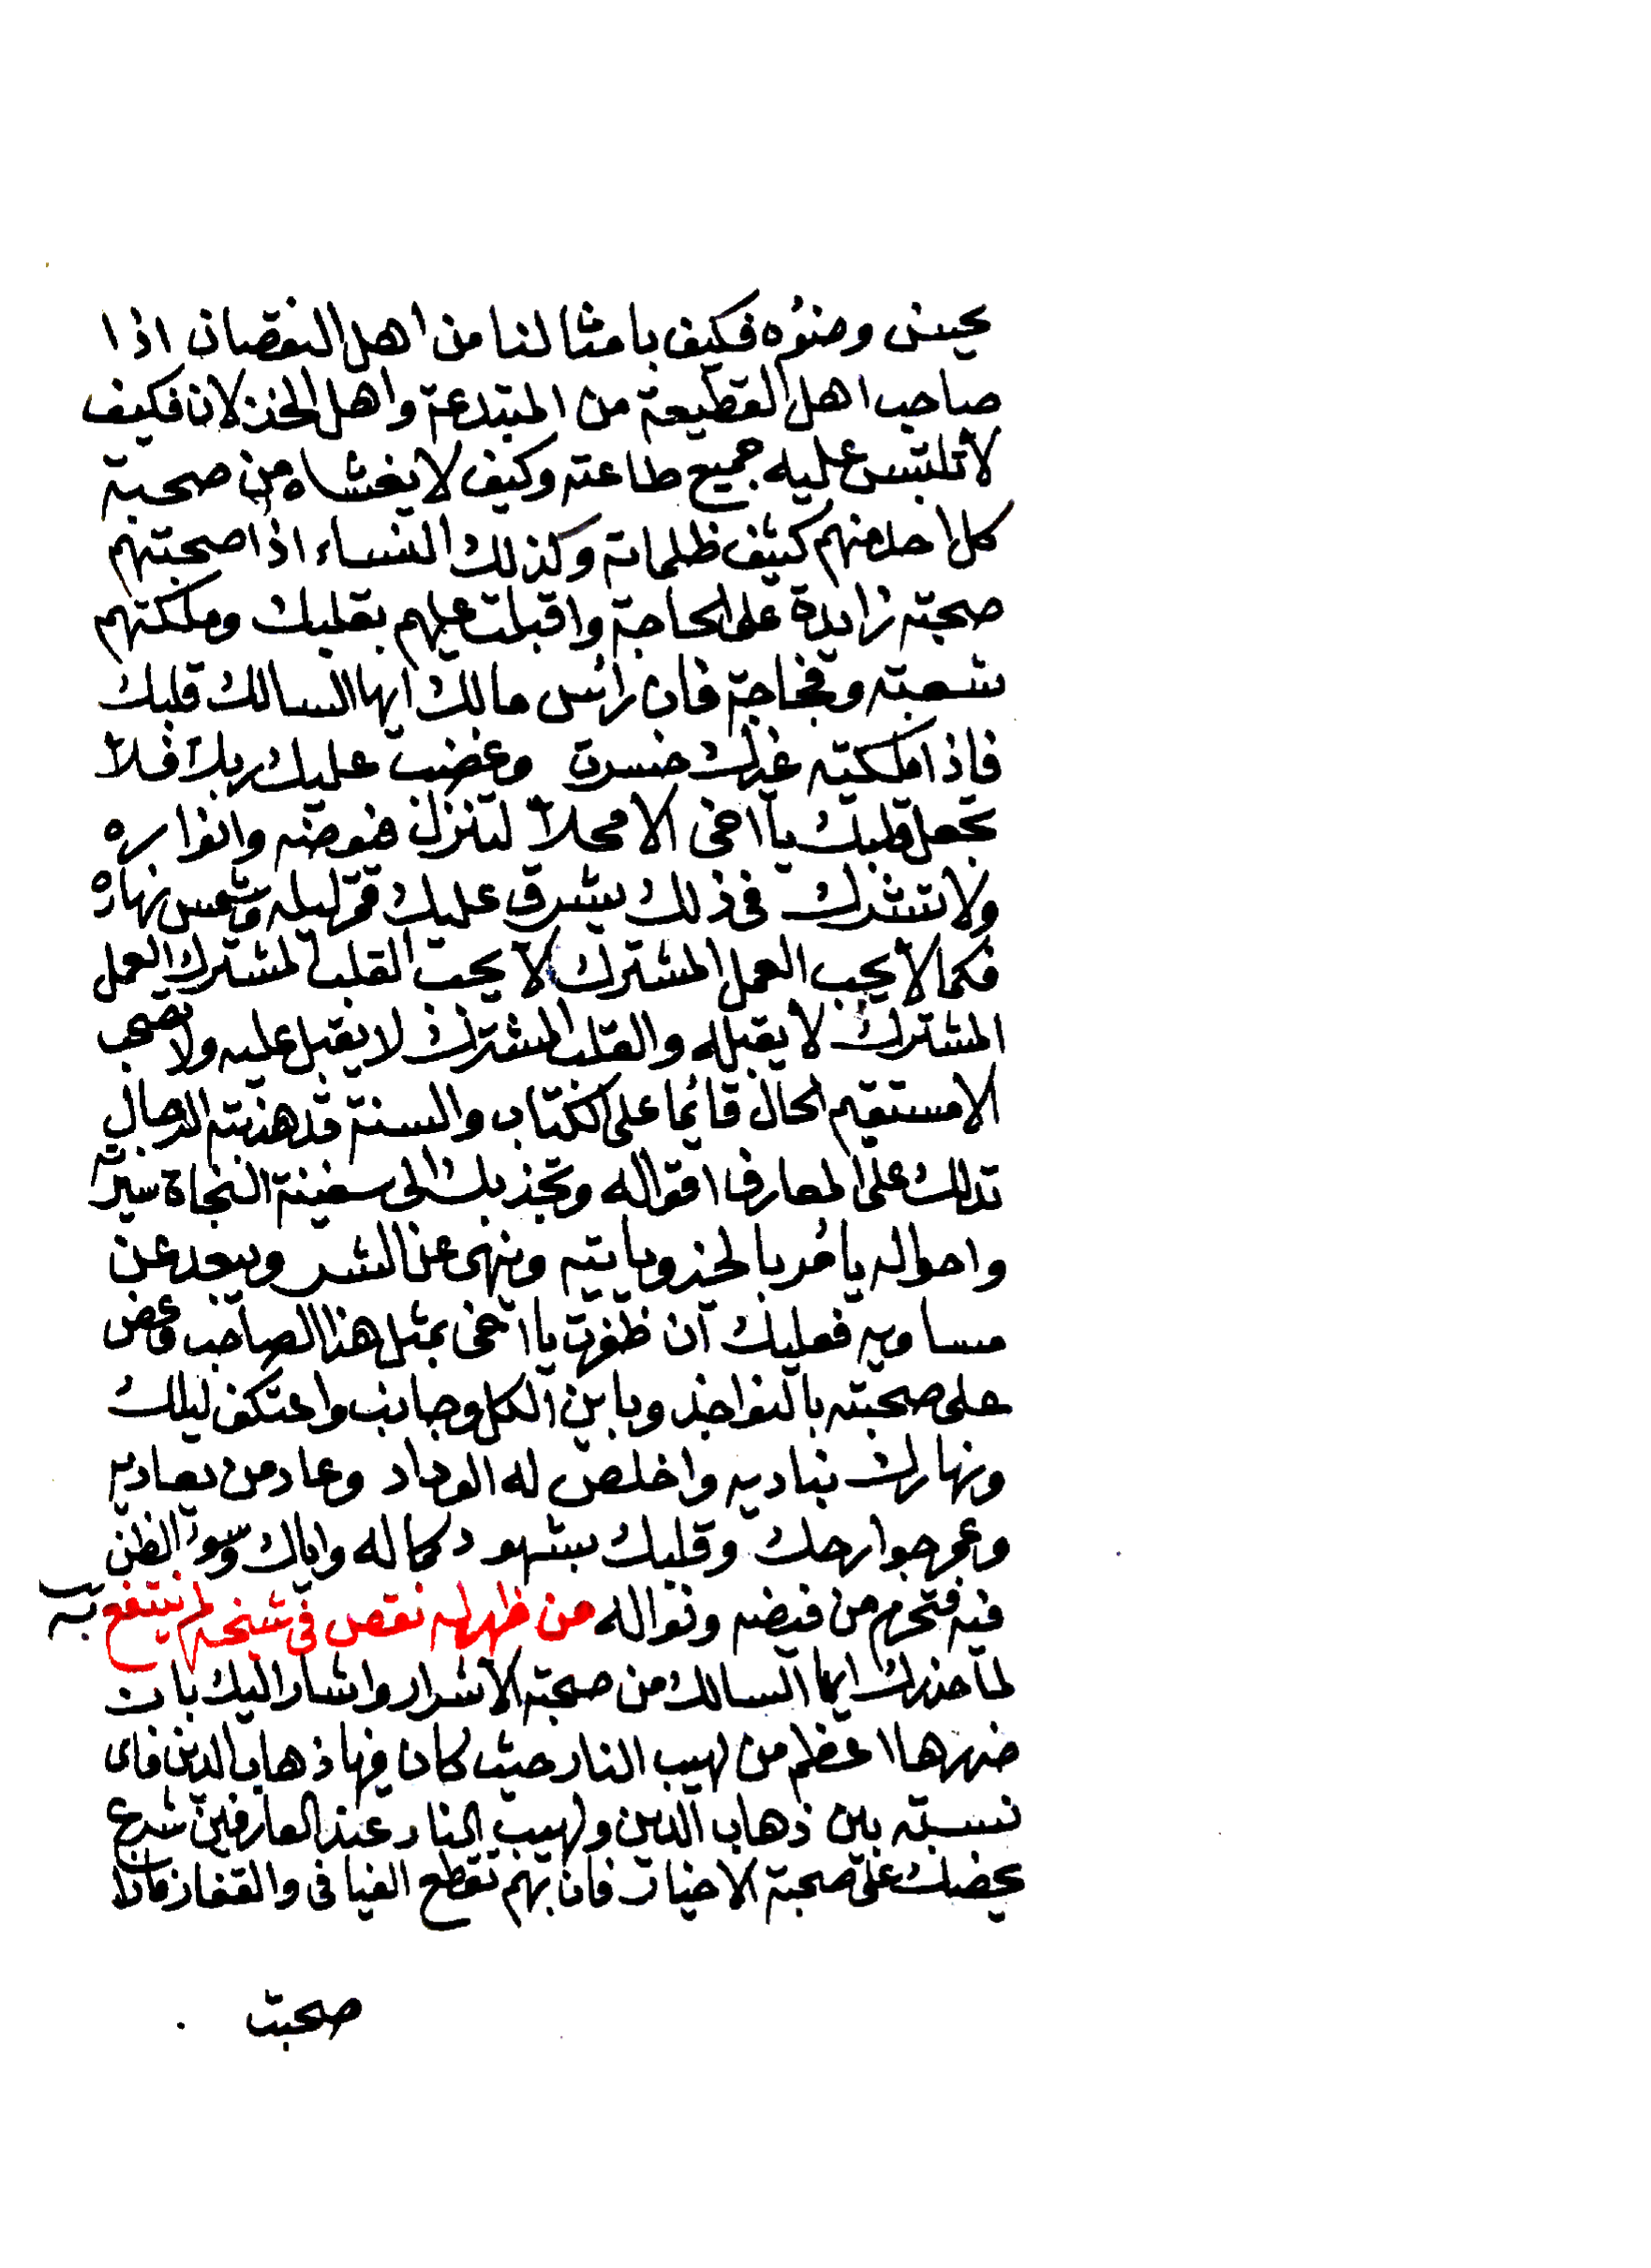 يحسن وضؤه فكيف بامثالنا من اهل النقصان اذا
صاحب اهل القطيعة من المبتدعة واهل الخذلان فكيف
لا تلتبس عليه جميع طاعته وكيف لا يغشاه من صحبة
كل احد منهم كثيف ظلماته وكذلك النساء اذا صحبتهم
صحبة زايدة على الحاجة واقبلت عليهم بقلبك وملكتهم
فان رأس مالك ايها السالك قلبك
فاذا ملكته غيرك خسرت وغضب عليك ربك فلا
تجعل قلبك يا اخى الا محلا لتنزل فيوضه وانواره
ولا تشرك فى ذلك يشرق عليك قمر ليله وشمس نهاره
فكما لا يحب العمل المشترك لا يحب القلب المشترك العمل
المشترك لا يقبله والقلب المشترك لا يقبل عليه ولا تصحب
الا مستقيم الحال قائما على الكتاب والسنة قد هذبته الرجال
تدلك على المعارف اقواله وتجذبك الى سفينة النجاة سيرته
واحواله يأمر بالخير وياتيه وينهى عن الشر ويبعد عن
مساويه فعليك ان ظفرت يا اخى بمثل هذا الصاحب وعض
على صحبته بالنواجذ وباين الكل وجانب واعتكف ليلك
ونهارك بناديه واخلص له الوداد وعاد من يعاديه
وعمر جوارحك وقلبك بشهود كماله واياك وسوء الظن
فيه فتحرم من فيضه ونواله من ظهر له نقص فى شيخه لم ينتفع به
لما حذرك ايها السالك من صحبة الاشرار واشار اليك بان
ضررها اعظم من لهيب النار حيث كان فيها ذهاب الدين فاى
نسبة بين ذهاب الدين ولهيب النار عند العارفين شرع
يحضك على صحبة الاخيار فان بهم تقطع الفيافى والقفار فاذا
صحبت